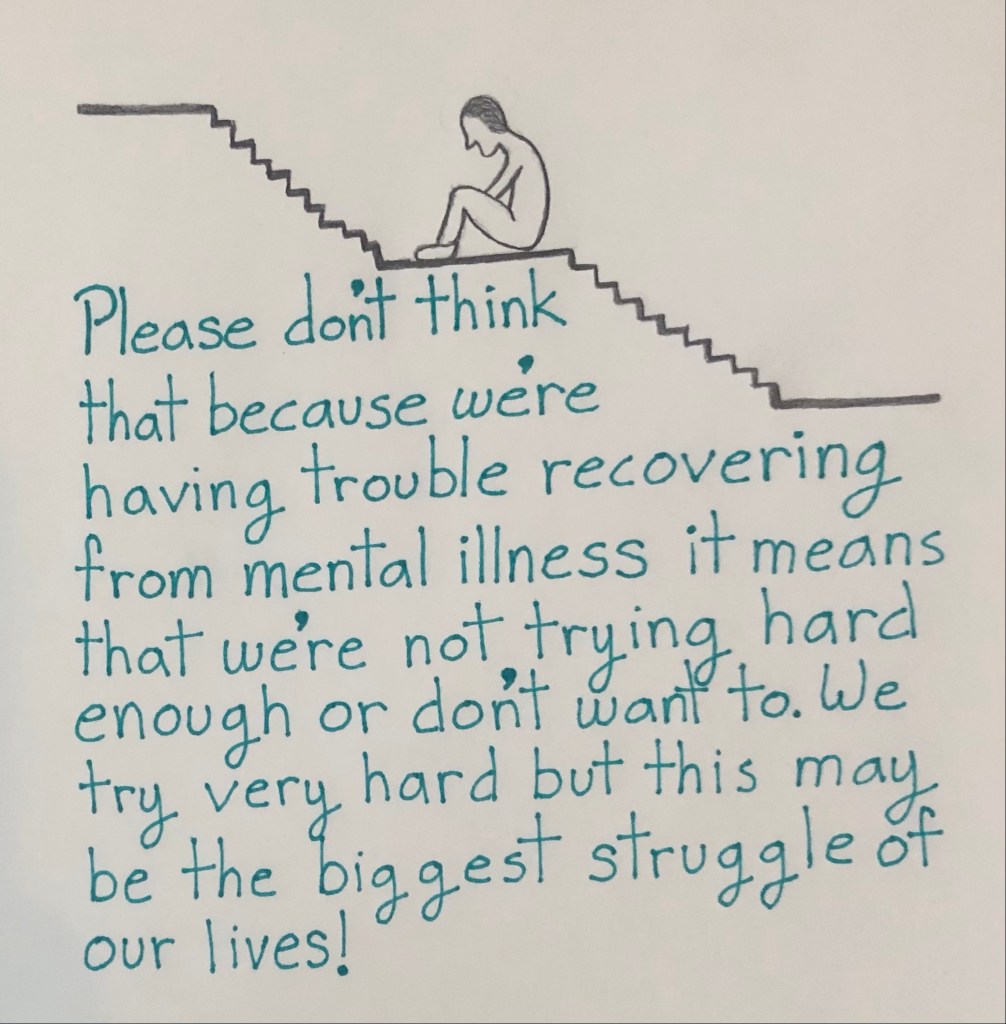 Please don't think
that because we're
having trouble recovering
from mental illness it means
that we're not trying hard
enough or don't want to. We
try very hard but this may
be the biggest struggle of
our lives!